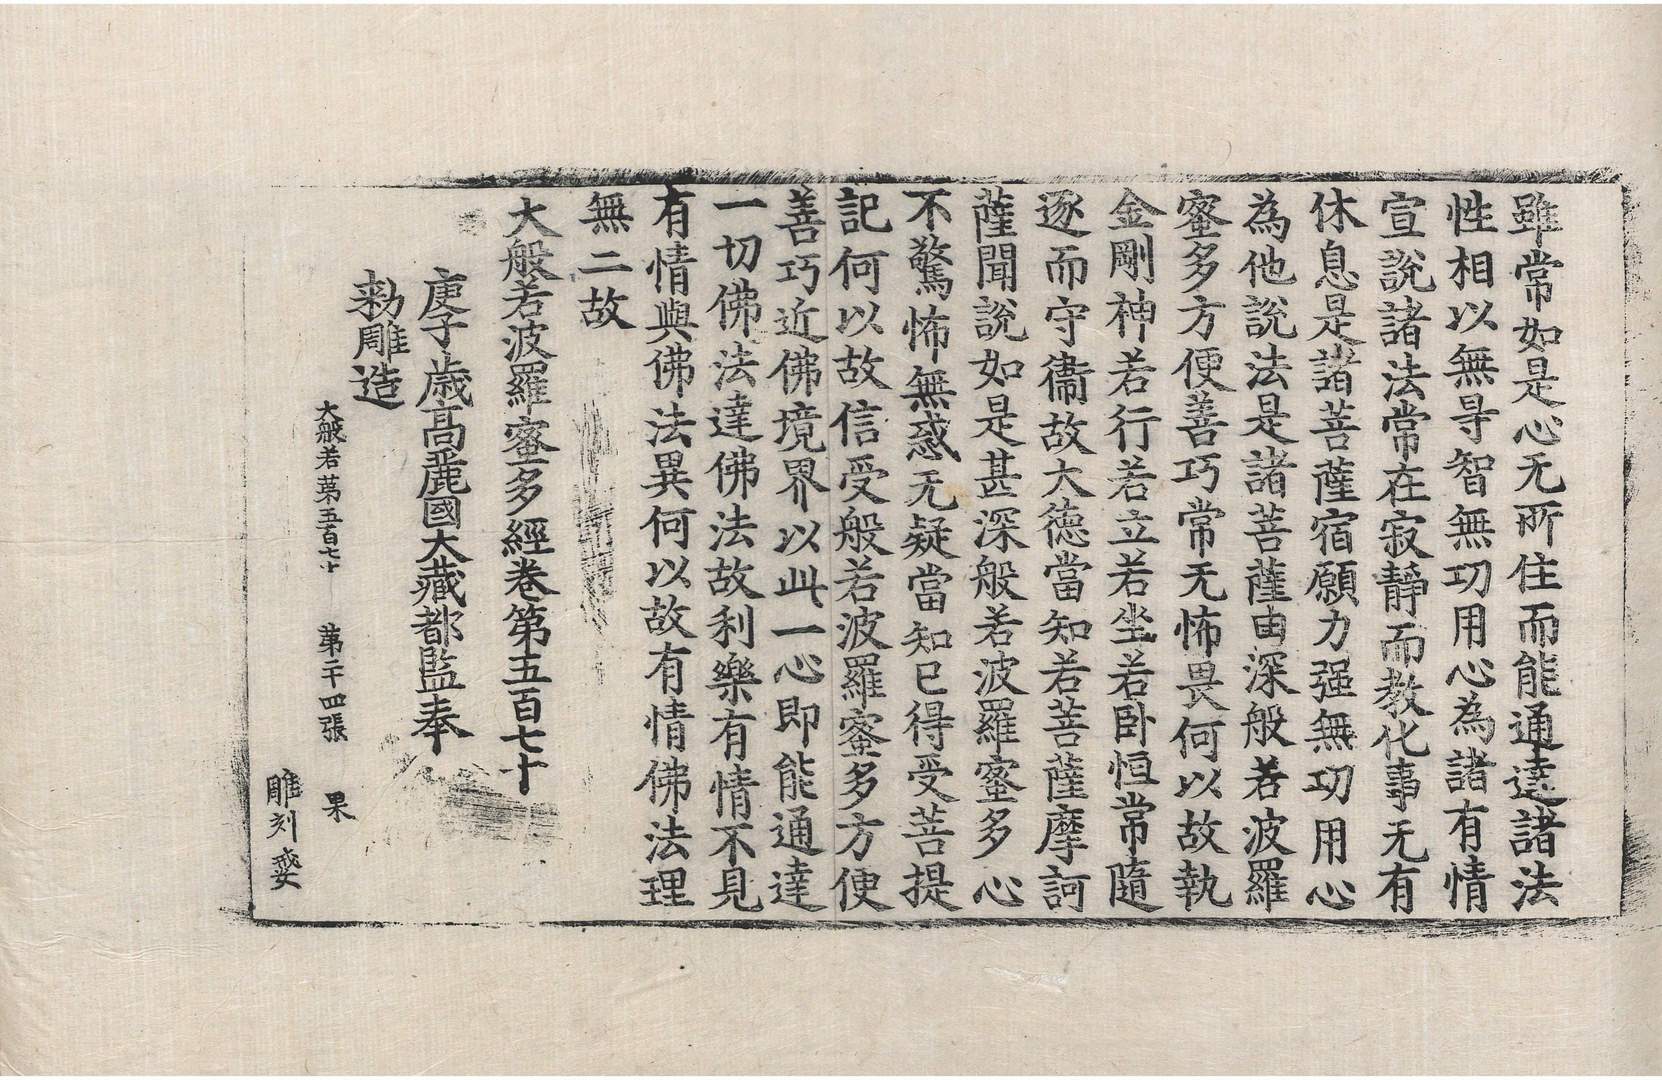 雖常如是心无所住而能通達諸法
性相以無㝵智無功用心為諸有情
宣說諸法常在寂靜而教化事无有
休息是諸菩薩宿願力强無功用心
為他說法是諸菩薩由深般若波羅
蜜多方便善巧常无怖畏何以故執
金剛神若行若立若坐若卧恒常隨
逐而守衞故大德當知若菩薩摩訶
薩聞說如是甚深般若波羅蜜多心
不驚怖無惑无疑當知已得受菩提
記何以故信受般若波羅蜜多方便
善巧近佛境界以此一心即能通達
一切佛法達佛法故利樂有情不見
有情與佛法異何以故有情佛法理
無二故
大般若波羅蜜多經卷第五百七十
庚子歲高麗國大藏都監奉
勑雕造
大般若苐五百七十 苐二十四張 果
雕刻